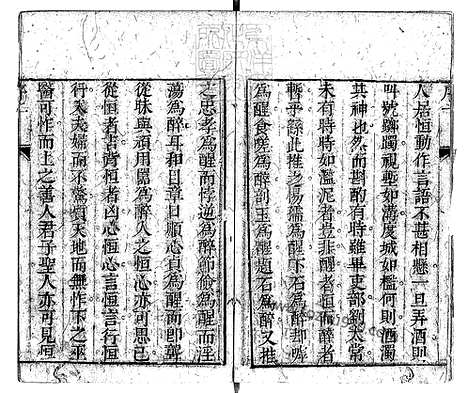 人居恒動作言語不甚相懸一旦弄酒則
叫號躑躅視塹如溝度城如檻何則酒濁
其神也然而斟酌有時雖畢吏部劉太常
未有時時如濫泥者豈非醒者恒而醉者
暫乎繇此推之惕孺為醒下石為醉却嚬
為醒食嗟為醉剖玉為醒題石為醉又推
之忠孝為醒而悖逆為醉節儉為醒而淫
蕩為醉耳和目章口順心貞為醒而即聾
從昧與頑用嚚為醉人之恒心亦可思已
從恒者吉背恒者凶心恒心言恒言行恒
行入夫婦而不驚質天地而無怍下之巫
醫可作而上之善人君子聖人亦可見恒
序二